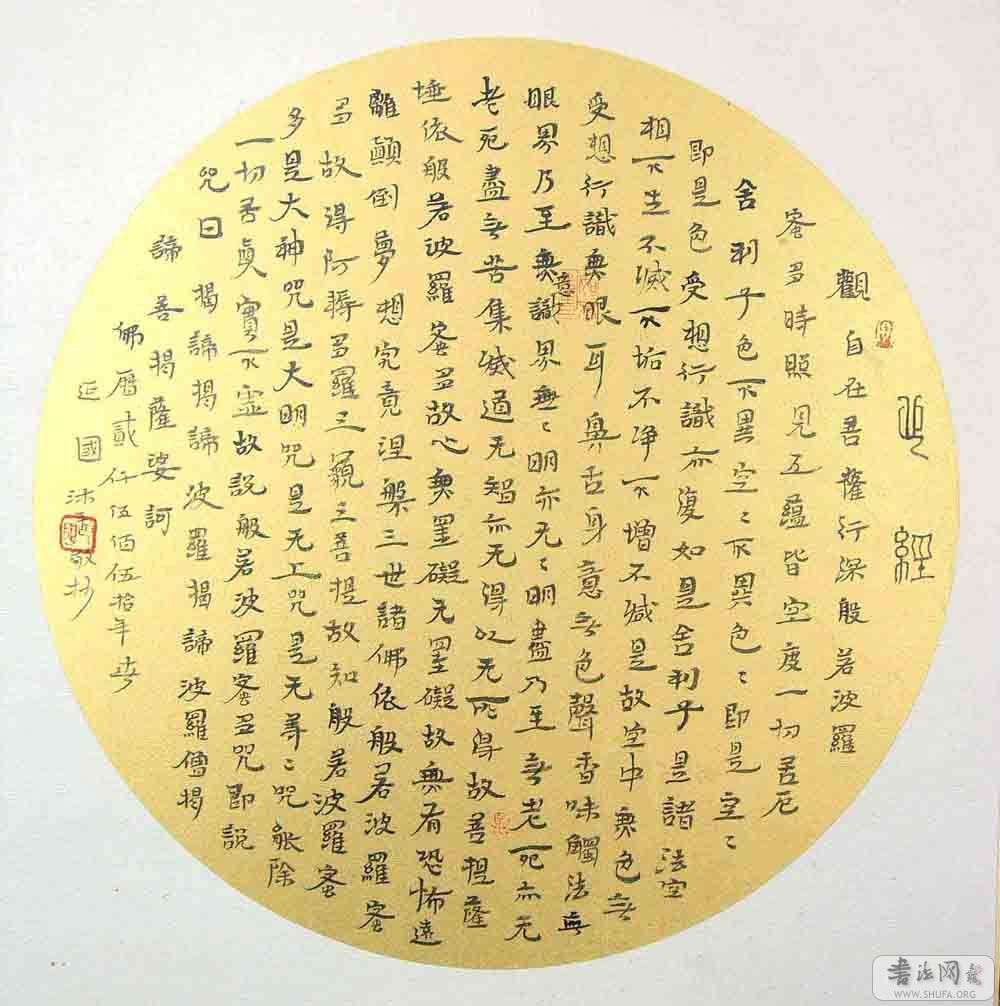 心經
觀自在菩薩行深般若波羅
蜜多時照見五蘊皆空度一切苦厄
舍利子色不異空〻不異色〻即是空〻
即是色受想行識亦復如是舍利子是諸法空
相不生不滅不垢不净不增不减是故空中無色无
受想行識無眼耳鼻舌身意无色聲香味觸法無
眼界乃至無意識界無〻明亦无〻明盡乃至无老死亦无
老死盡无苦集滅道无智亦无得以无所得故菩提薩
埵依般若波羅蜜多故心無罣礙无罣礙故無有恐怖遠
離顛倒夢想究竟涅槃三世諸佛依般若波羅蜜
多故得阿耨多羅三藐三菩提故知般若波羅蜜
多是大神咒是大明咒是无上咒是无等〻咒能除
一切苦真實不虛故說般若波羅蜜多咒即說
咒曰 揭諦揭諦波羅揭諦波羅僧揭
諦菩揭薩婆訶
佛曆貳仟伍佰伍拾年
延國沐手敬抄
书法网
WWW.SHUFA.ORG